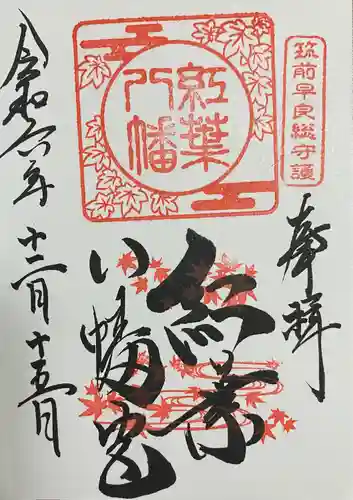 筑前早良総守護
奉拝
紅葉
八幡
紅葉
八幡宮
令和六年
十二月十五日